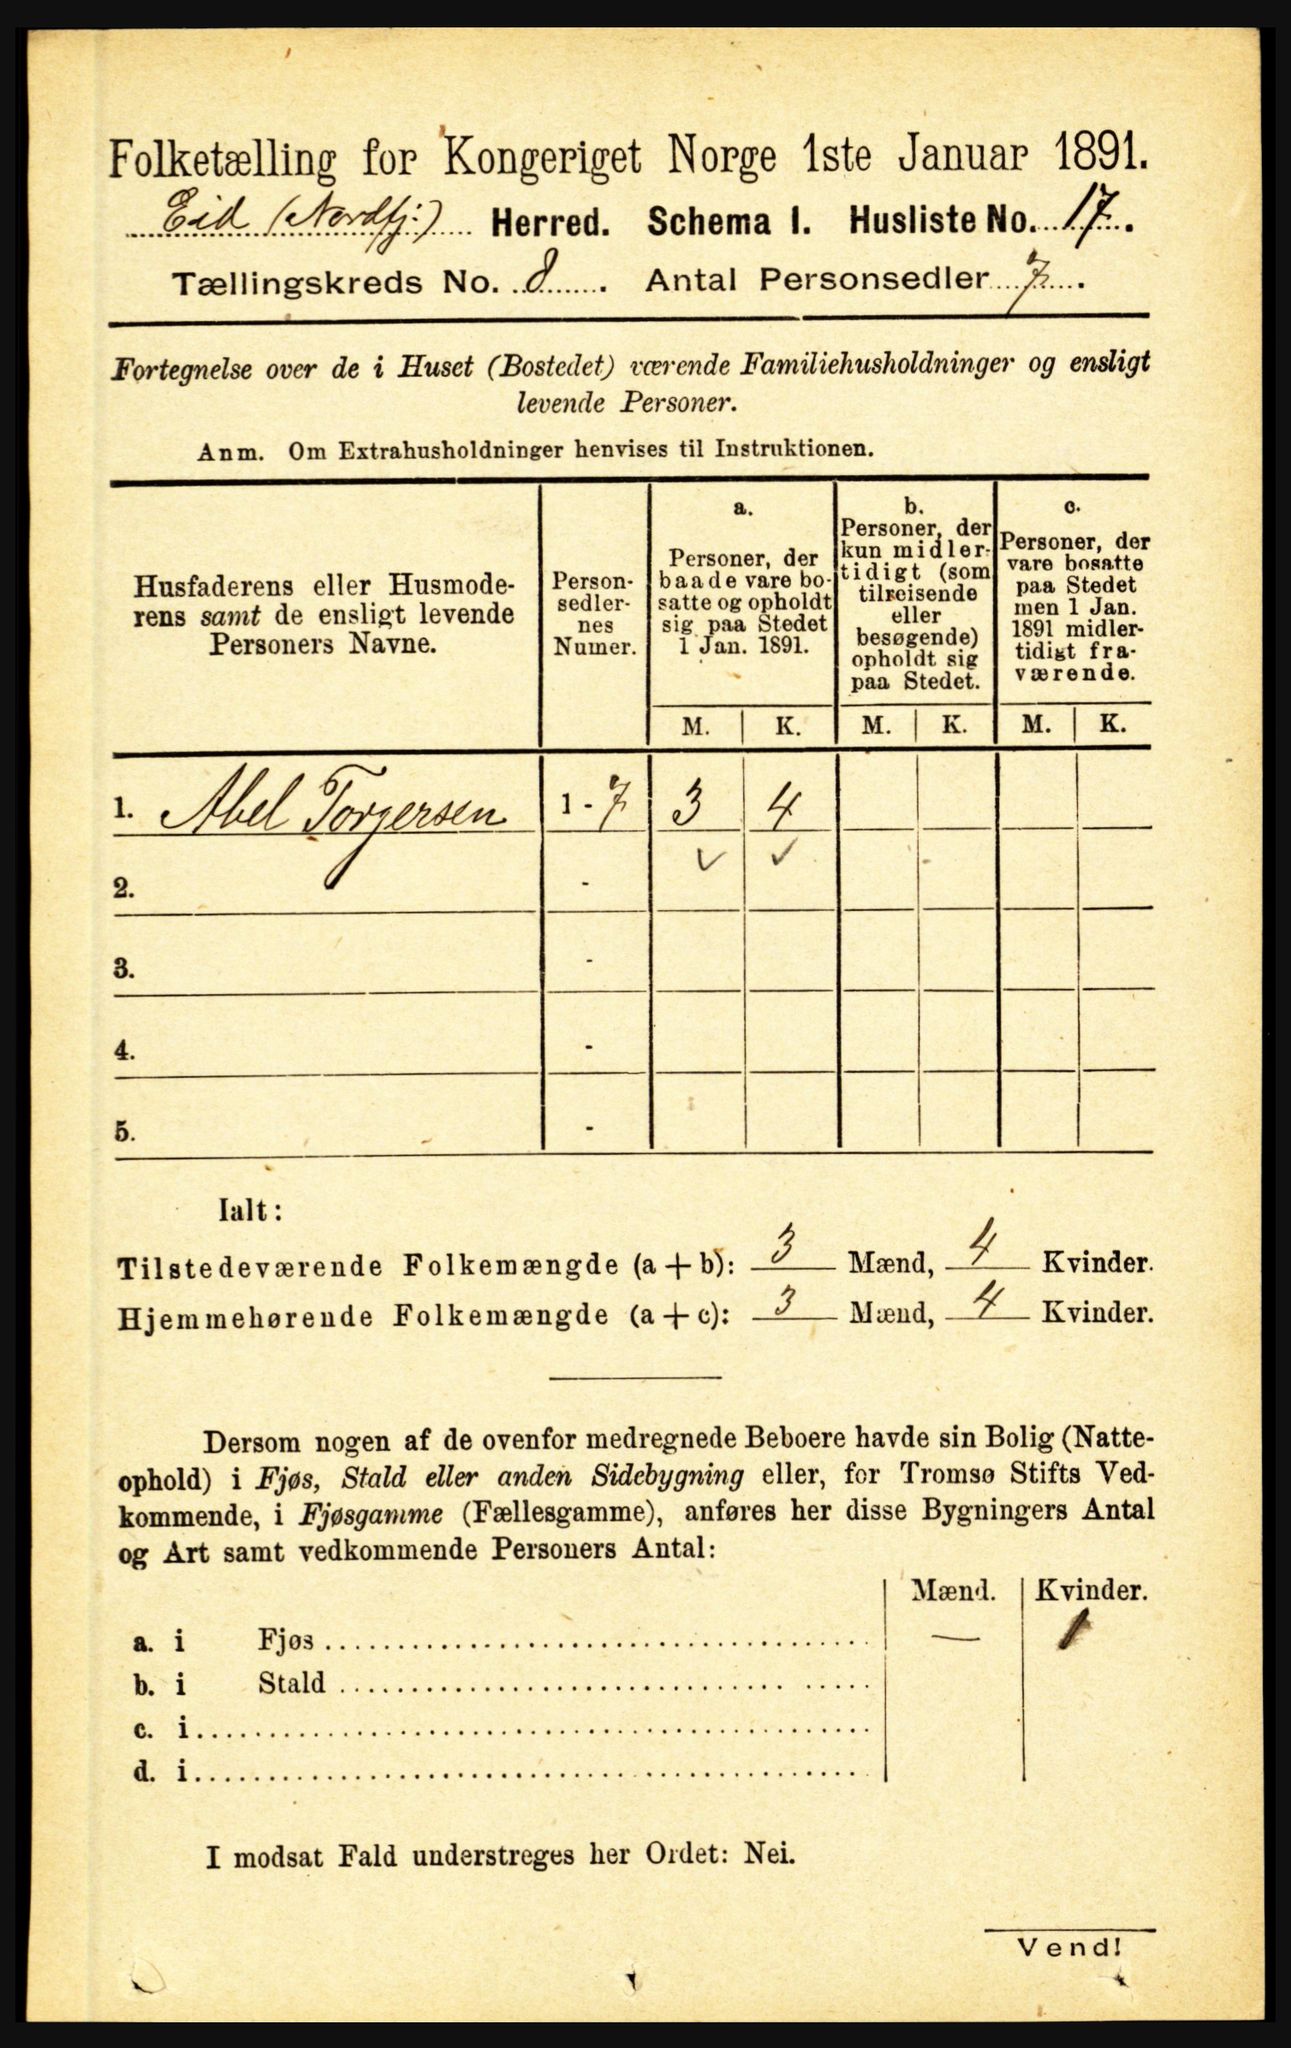 Folketælling for Kongeriget Norge 1ste Januar 1891.
Eid (Nordfj:) Herred. Schema I. Husliste No. 17.
Tællingskreds No. 8. Antal Personsedler 7.
Fortegnelse over de i Huset (Bostedet) værende Familiehusholdninger og ensligt
levende Personer.
Anm. Om Extrahusholdninger henvises til Instruktionen.
Husfaderens eller Husmode-
rens samt de ensligt levende
Personers Navne.
Person-
sedler-
nes
Numer.
a.
Personer, der
baade vare bo-
satte og opholdt
sig paa Stedet
1 Jan. 1891.
b.
Personer, der
kun midler-
tidigt (som
tilreisende
eller
besøgende)
opholdt sig
paa Stedet.
c.
Personer, der
vare bosatte
paa Stedet
men 1 Jan.
1891 midler-
tidigt fra-
værende.
M. K. M. K. M. K.
1. Abel Torgersen 1 - 7 3 4
2. -
3. -
4. -
5. -
Ialt:
Tilstedeværende Folkemængde (a + b): 3 Mænd, 4 Kvinder.
Hjemmehørende Folkemængde (a + c): 3 Mænd, 4 Kvinder.
Dersom nogen af de ovenfor medregnede Beboere havde sin Bolig (Natte-
ophold) i Fjøs, Stald eller anden Sidebygning eller, for Tromsø Stifts Ved-
kommende, i Fjøsgamme (Fællesgamme), anføres her disse Bygningers Antal
og Art samt vedkommende Personers Antal:
Mænd. Kvinder.
a. i Fjøs — 1
b. i Stald
c. i
d. i
I modsat Fald understreges her Ordet: Nei.
Vend!